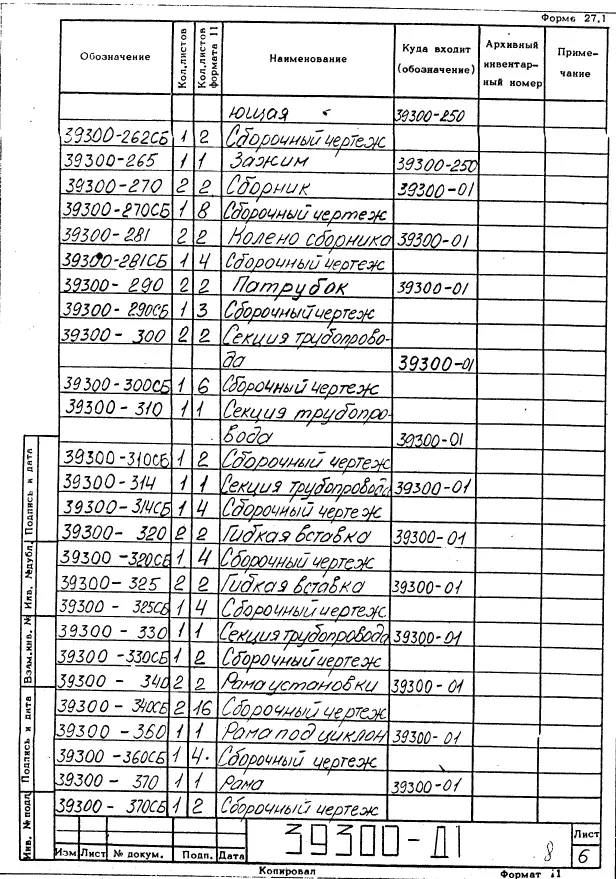 Форма 27.1
Обозначение Кол.листов Кол.листов формата 11 Наименование Куда входит (обозначение) Архивный инвентарный номер Примечание
ющая 39300-250
39300-262СБ 1 2 Сборочный чертеж
39300-265 1 1 Зажим 39300-250
39300-270 2 2 Сборник 39300-01
39300-270СБ 1 8 Сборочный чертеж
39300-281 2 2 Колено сборника 39300-01
39300-281СБ 1 4 Сборочный чертеж
39300-290 2 2 Патрубок 39300-01
39300-290СБ 1 3 Сборочный чертеж
39300-300 2 2 Секция трубопрово-
да 39300-01
39300-300СБ 1 6 Сборочный чертеж
39300-310 1 1 Секция трубопро-
вода 39300-01
39300-310СБ 1 2 Сборочный чертеж
39300-314 1 1 Секция трубопровода 39300-01
39300-314СБ 1 4 Сборочный чертеж
39300-320 2 2 Гибкая вставка 39300-01
39300-320СБ 1 4 Сборочный чертеж
39300-325 2 2 Гибкая вставка 39300-01
39300-325СБ 1 4 Сборочный чертеж
39300-330 1 1 Секция трубопровода 39300-01
39300-330СБ 1 2 Сборочный чертеж
39300-340 2 2 Рама установки 39300-01
39300-340СБ 2 16 Сборочный чертеж
39300-360 1 1 Рама под циклон 39300-01
39300-360СБ 1 4 Сборочный чертеж
39300-370 1 1 Рама 39300-01
39300-370СБ 1 2 Сборочный чертеж
Подпись и дата
Инв. №дубл.
Взам.инв. №
Подпись и дата
Инв. № подл
39300-Д1
8
Лист
6
Изм Лист № докум. Подп. Дата
Копировал Формат 11